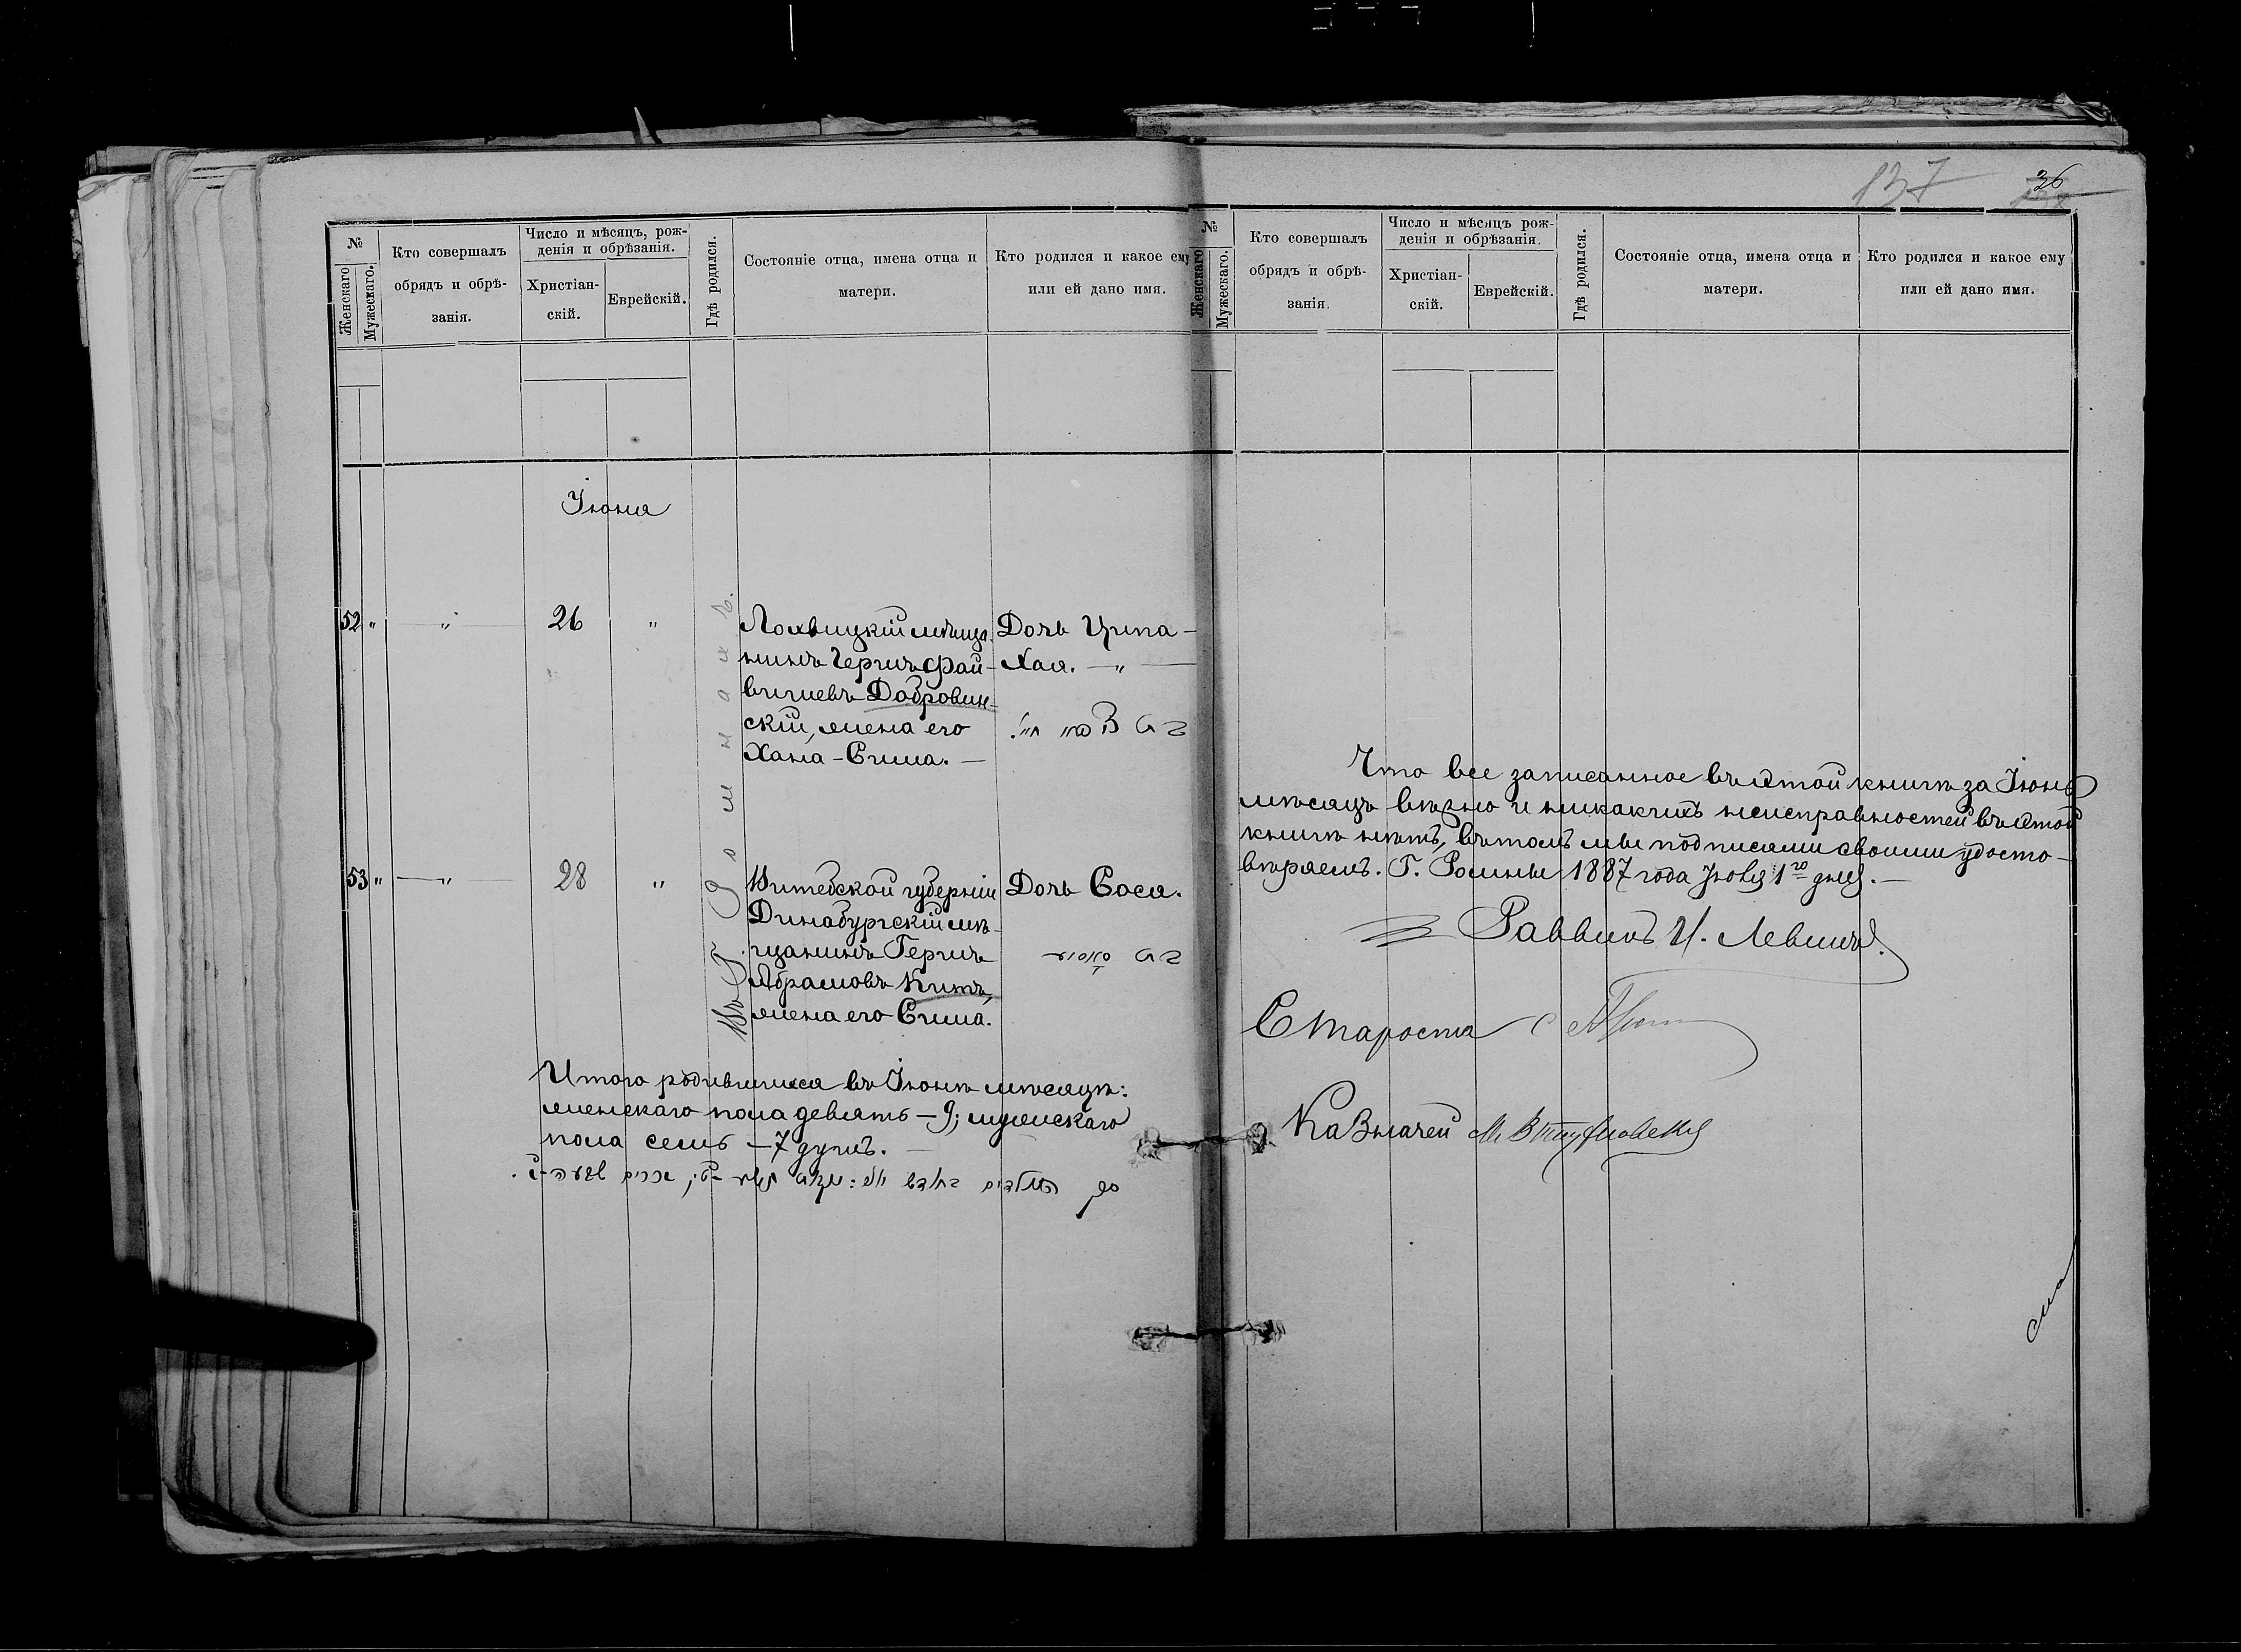 137 36
№
Женскаго
Мужескаго.
Кто совершалъ
обрядъ и обрѣ-
занія.
Число и мѣсяцъ, рож-
денія и обрѣзанія.
Христіан-
скій.
Еврейскій.
Гдѣ родился.
Состояніе отца, имена отца и
матери.
Кто родился и какое ему
или ей дано имя.
Іюня
52 " " 26 "
Лохвицкій мѣща-
нинъ Гершъ Фай-
вишевъ Добровин-
скій, жена его
Хана-Сима. —
Дочь Ципа-
Хая. — " —
53 " — " — 28 "
Витебской губерніи
Динабургскій мѣ-
щанинъ Гершъ
Абрамовъ Китъ,
жена его Сима.
Дочь Сося.
Итого родившихся въ Іюнѣ мѣсяцѣ:
женскаго пола девять — 9; мужескаго
пола семь — 7 душъ. —
№
Женскаго
Мужескаго.
Кто совершалъ
обрядъ и обрѣ-
занія.
Число и мѣсяцъ рож-
денія и обрѣзанія.
Христіан-
скій.
Еврейскій.
Гдѣ родился.
Состояніе отца, имена отца и
матери.
Кто родился и какое ему
или ей дано имя.
Что все записанное въ этой книгѣ за Іюнь
мѣсяцъ вѣрно и никакихъ неисправностей въ этой
книгѣ нѣтъ, въ томъ мы подписями своими удосто-
вѣряемъ. Г. Ромны 1887 года Іюля 1го дня. —
Раввинъ И. Левинъ.
Староста
Казначей